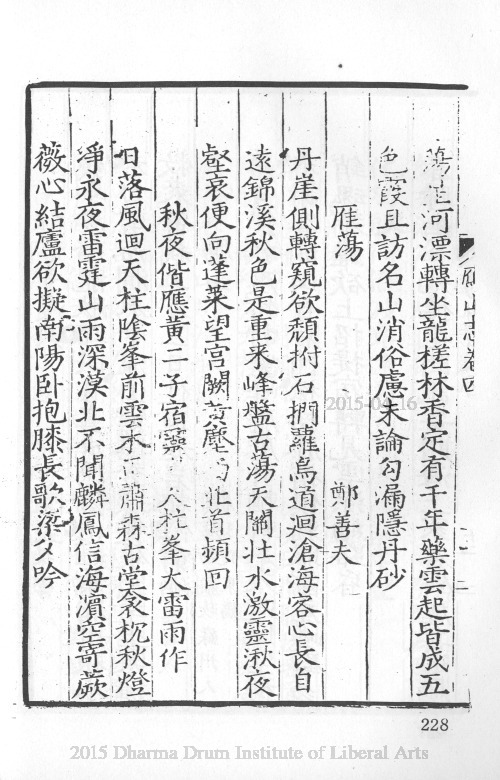 河漂轉坐龍槎林香定有千年藥雲起皆成五
色霞且訪名山消俗慮未論勾漏隱丹砂
雁蕩
鄭善夫
丹崖側轉窺欲頹拊石捫蘿鳥道迴滄海客心長自
遠錦溪秋色是重來峰盤古蕩天關壯水激靈湫夜
壑哀便向蓬萊望宮闕黃塵北首頻回
秋夜偕應黃二子宿靈峯大雷雨作
日落風迴天柱陰峯前雲木蕭森古堂衾枕秋燈
淨永夜雷霆山雨深漠北不聞麟鳳信海濱空寄蕨
薇心結廬欲擬南陽臥抱膝長歌梁父吟
山志卷四
2015-04-16
228
2015 Dharma Drum Institute of Liberal Arts